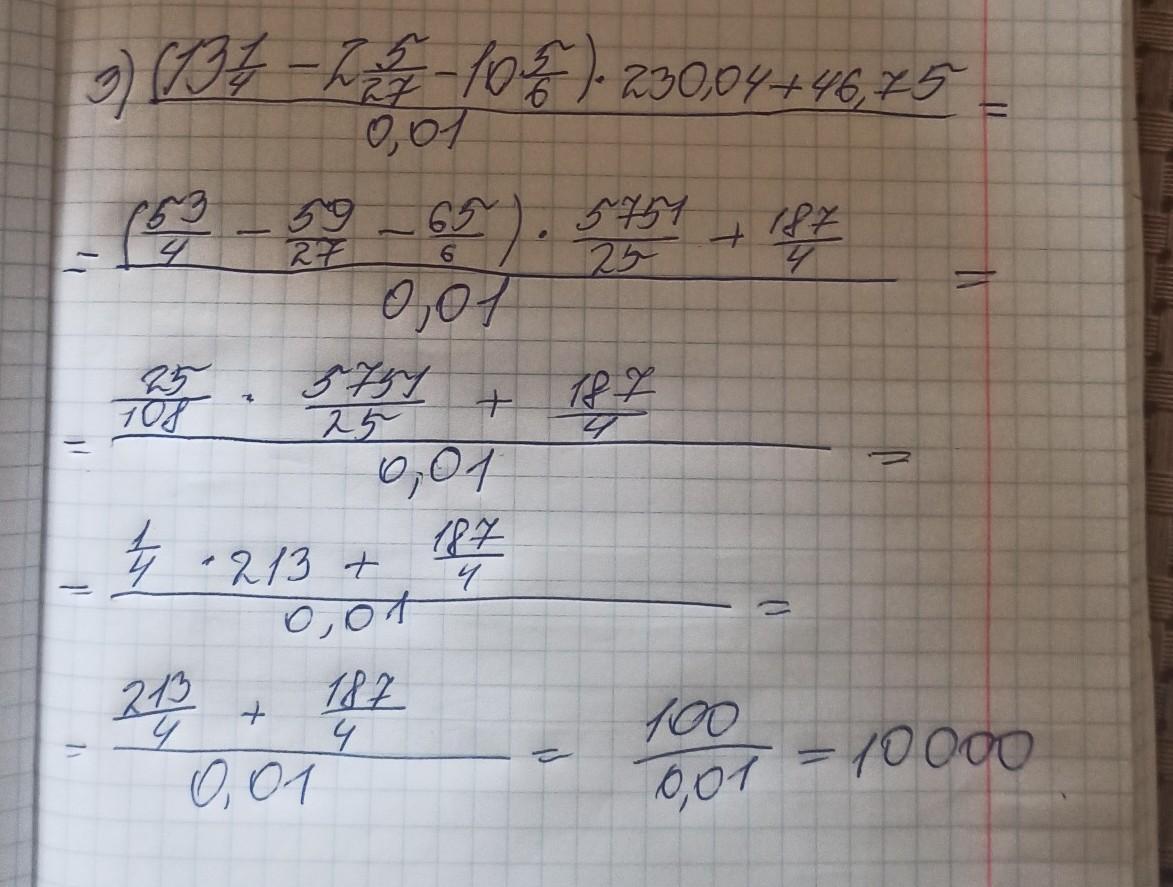 3) ((13 1/4 - 2 5/27 - 10 5/6) · 230,04 + 46,75) / 0,01 =
= ((53/4 - 59/27 - 65/6) · 5751/25 + 187/4) / 0,01 =
= (25/108 · 5751/25 + 187/4) / 0,01 =
= (1/4 · 213 + 187/4) / 0,01 =
= (213/4 + 187/4) / 0,01 = 100/0,01 = 10000